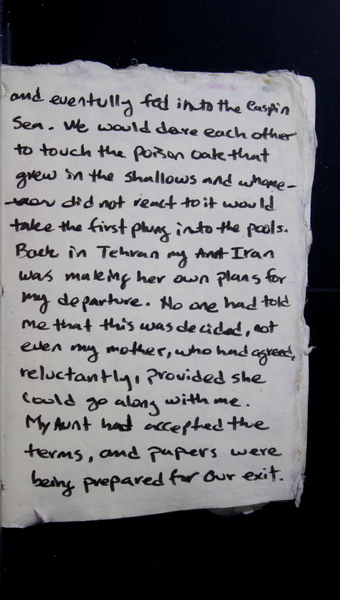 and eventully fed into the Caspin
Sea. We would dare each other
to touch the poison oake that
grew in the shallows and whome-
ever did not react to it would
take the first plung into the pools.
Back in Tehran my Ant Iran
was making her own plans for
my departure. No one had told
me that this was decided, not
even my mother, who had agreed,
reluctantly, provided she
could go along with me.
My Aunt had accepted the
terms, and papers were
being prepared for our exit.